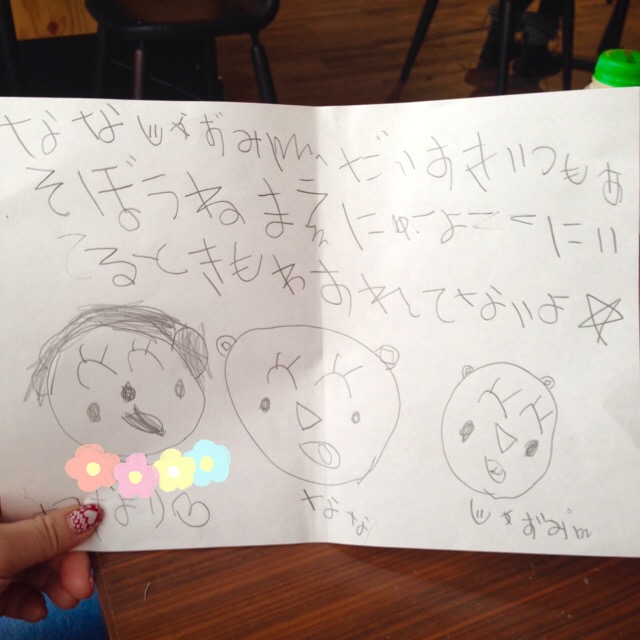 ななじゃずみm だいすきいつもあ
そぼうねまえにゅーよーくにい
てるときもわすれてないよ☆
より♡ なな じゃずみm